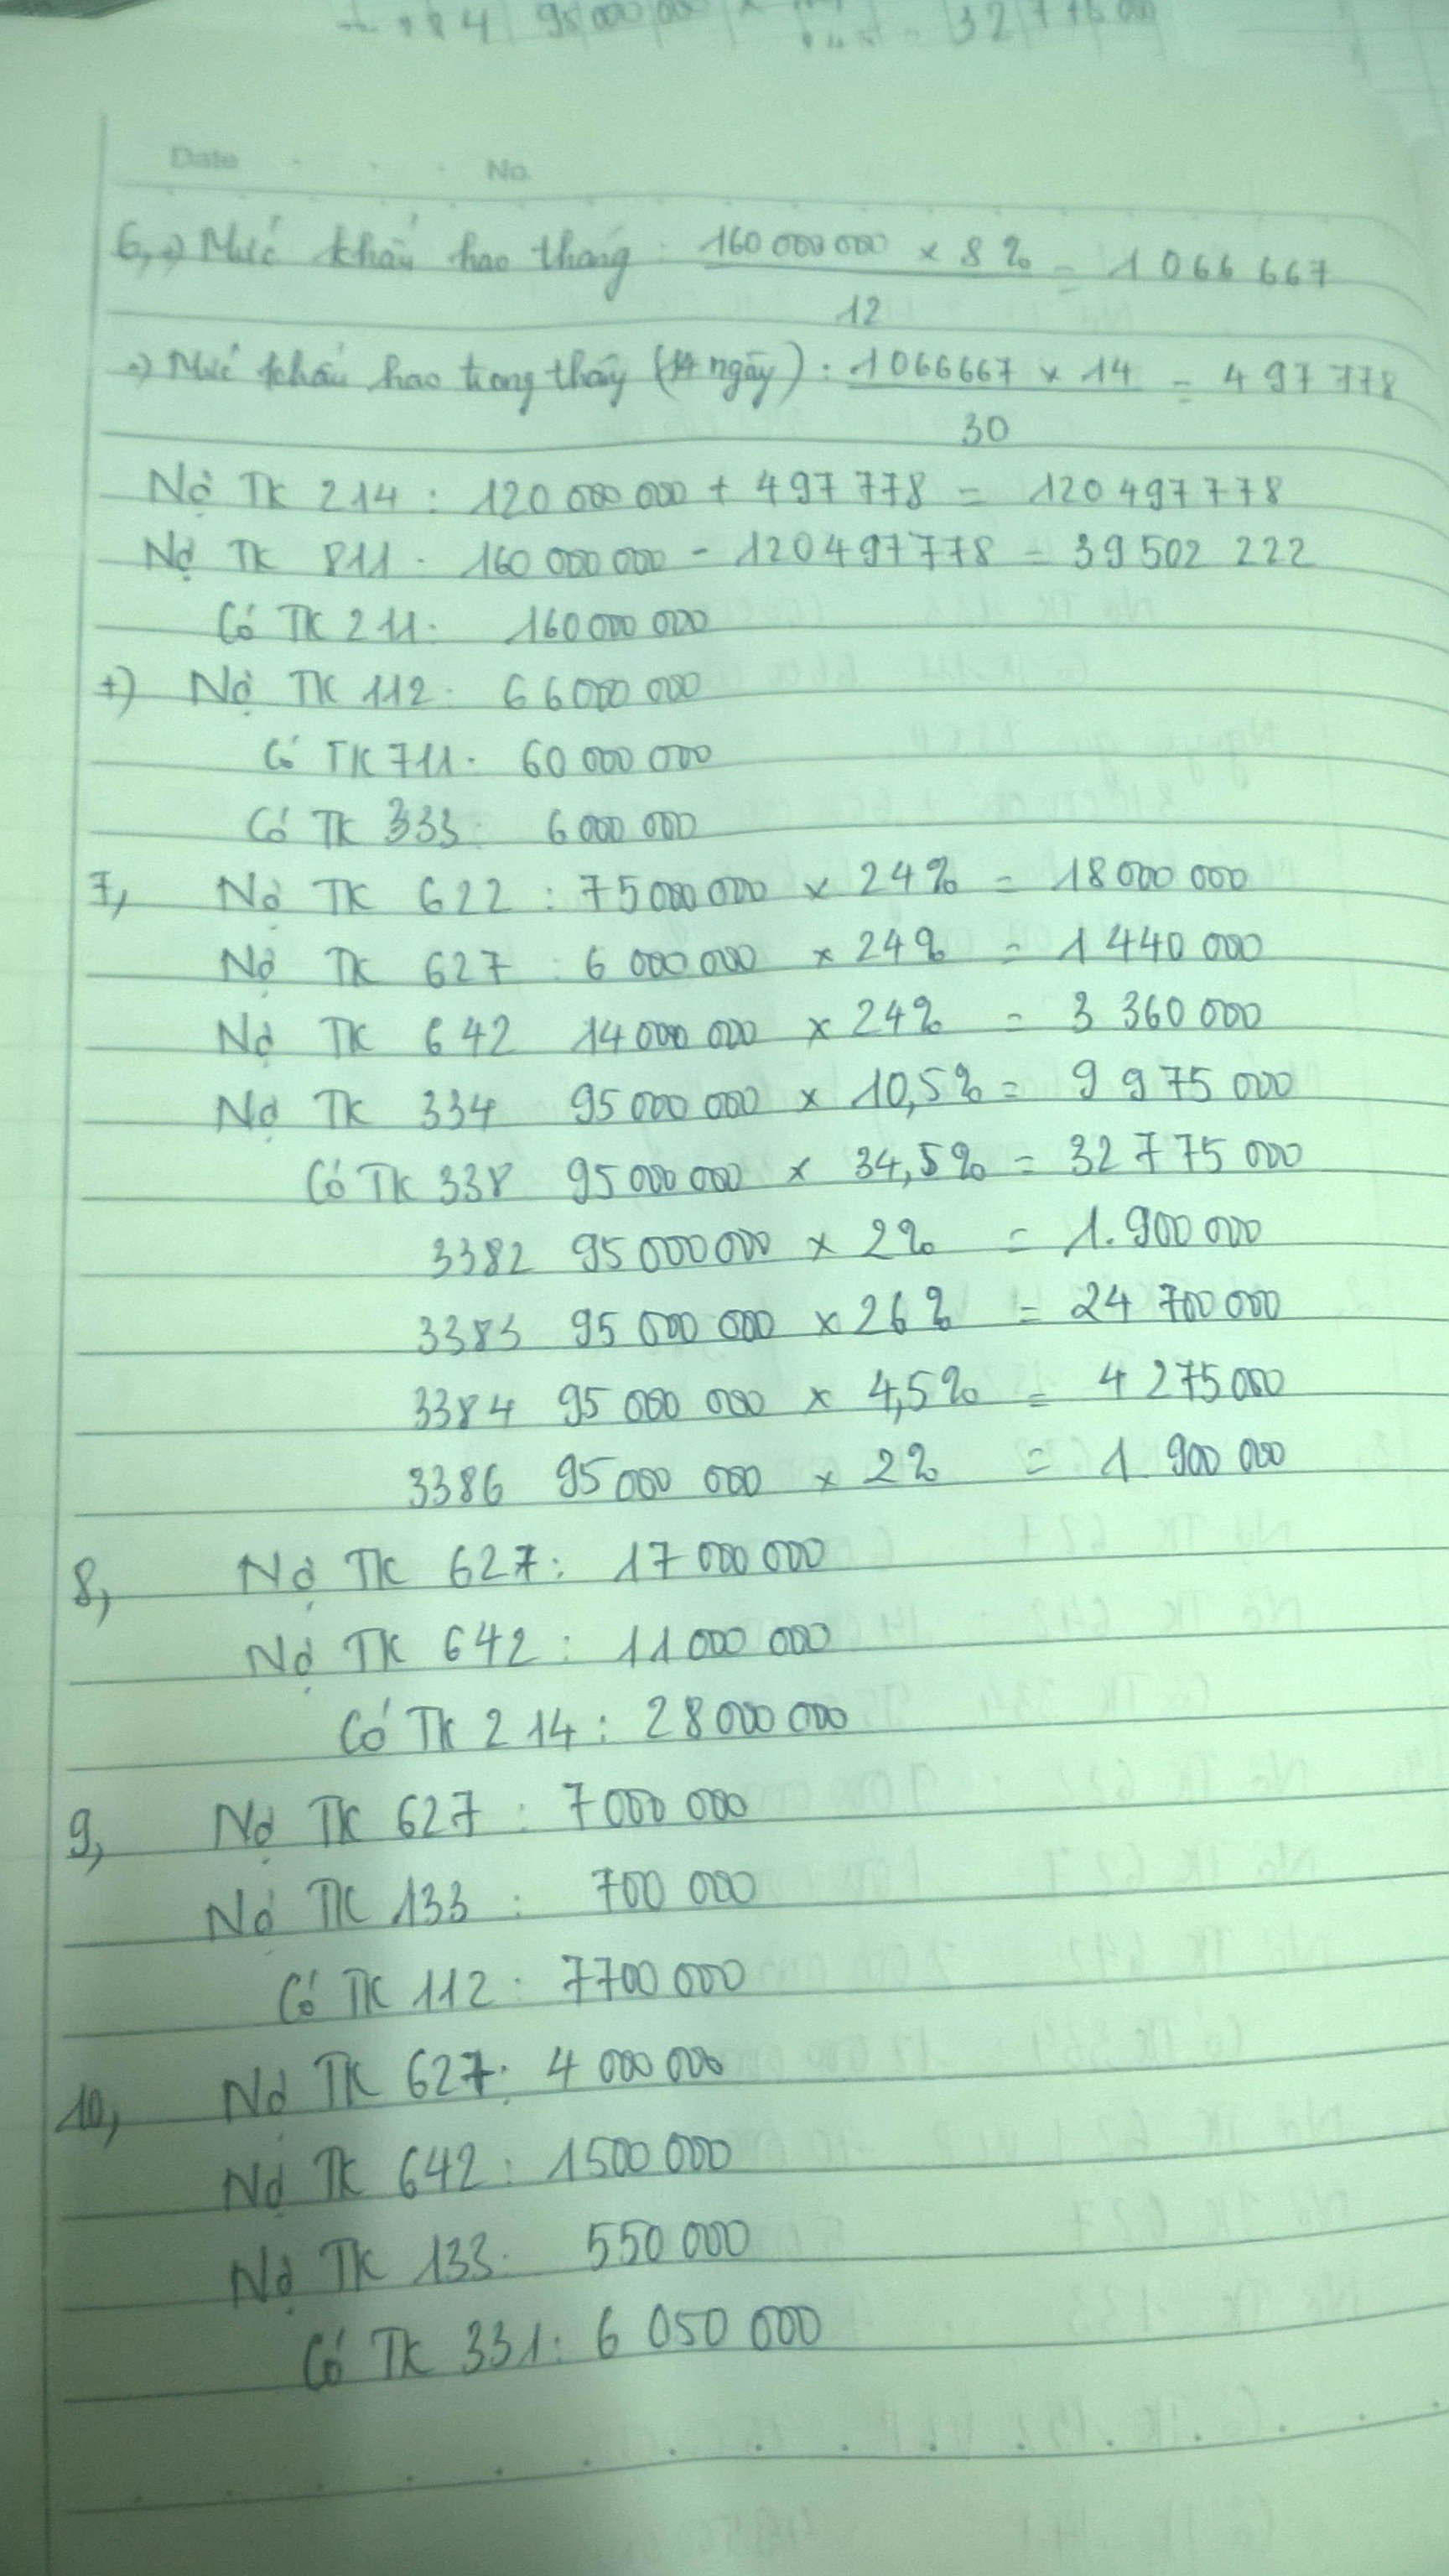 Date No.
6, +) Mức khấu hao tháng : 160 000 000 × 8% = 1 066 667
12
+) Mức khấu hao trong tháng (14 ngày) : 1 066667 × 14 = 497 778
30
Nợ TK 214 : 120 000 000 + 497 778 = 120 497 778
Nợ TK 811 : 160 000 000 - 120497778 = 39 502 222
Có TK 211: 160 000 000
+) Nợ TK 112: 66 000 000
Có TK 711: 60 000 000
Có TK 333: 6 000 000
7, Nợ TK 622 : 75 000 000 × 24% = 18 000 000
Nợ TK 627 : 6 000 000 × 24% = 1 440 000
Nợ TK 642 14 000 000 × 24% = 3 360 000
Nợ TK 334 95 000 000 × 10,5% = 9 975 000
Có TK 338 95 000 000 × 34,5% = 32 775 000
3382 95 000 000 × 2% = 1.900 000
3383 95 000 000 × 26% = 24 700 000
3384 95 000 000 × 4,5% = 4 275 000
3386 95 000 000 × 2% = 1 900 000
8, Nợ TK 627: 17 000 000
Nợ TK 642 : 11 000 000
Có TK 214 : 28 000 000
9, Nợ TK 627 : 7 000 000
Nợ TK 133 : 700 000
Có TK 112 : 7700 000
10, Nợ TK 627: 4 000 000
Nợ TK 642 : 1500 000
Nợ TK 133: 550 000
Có TK 331: 6 050 000